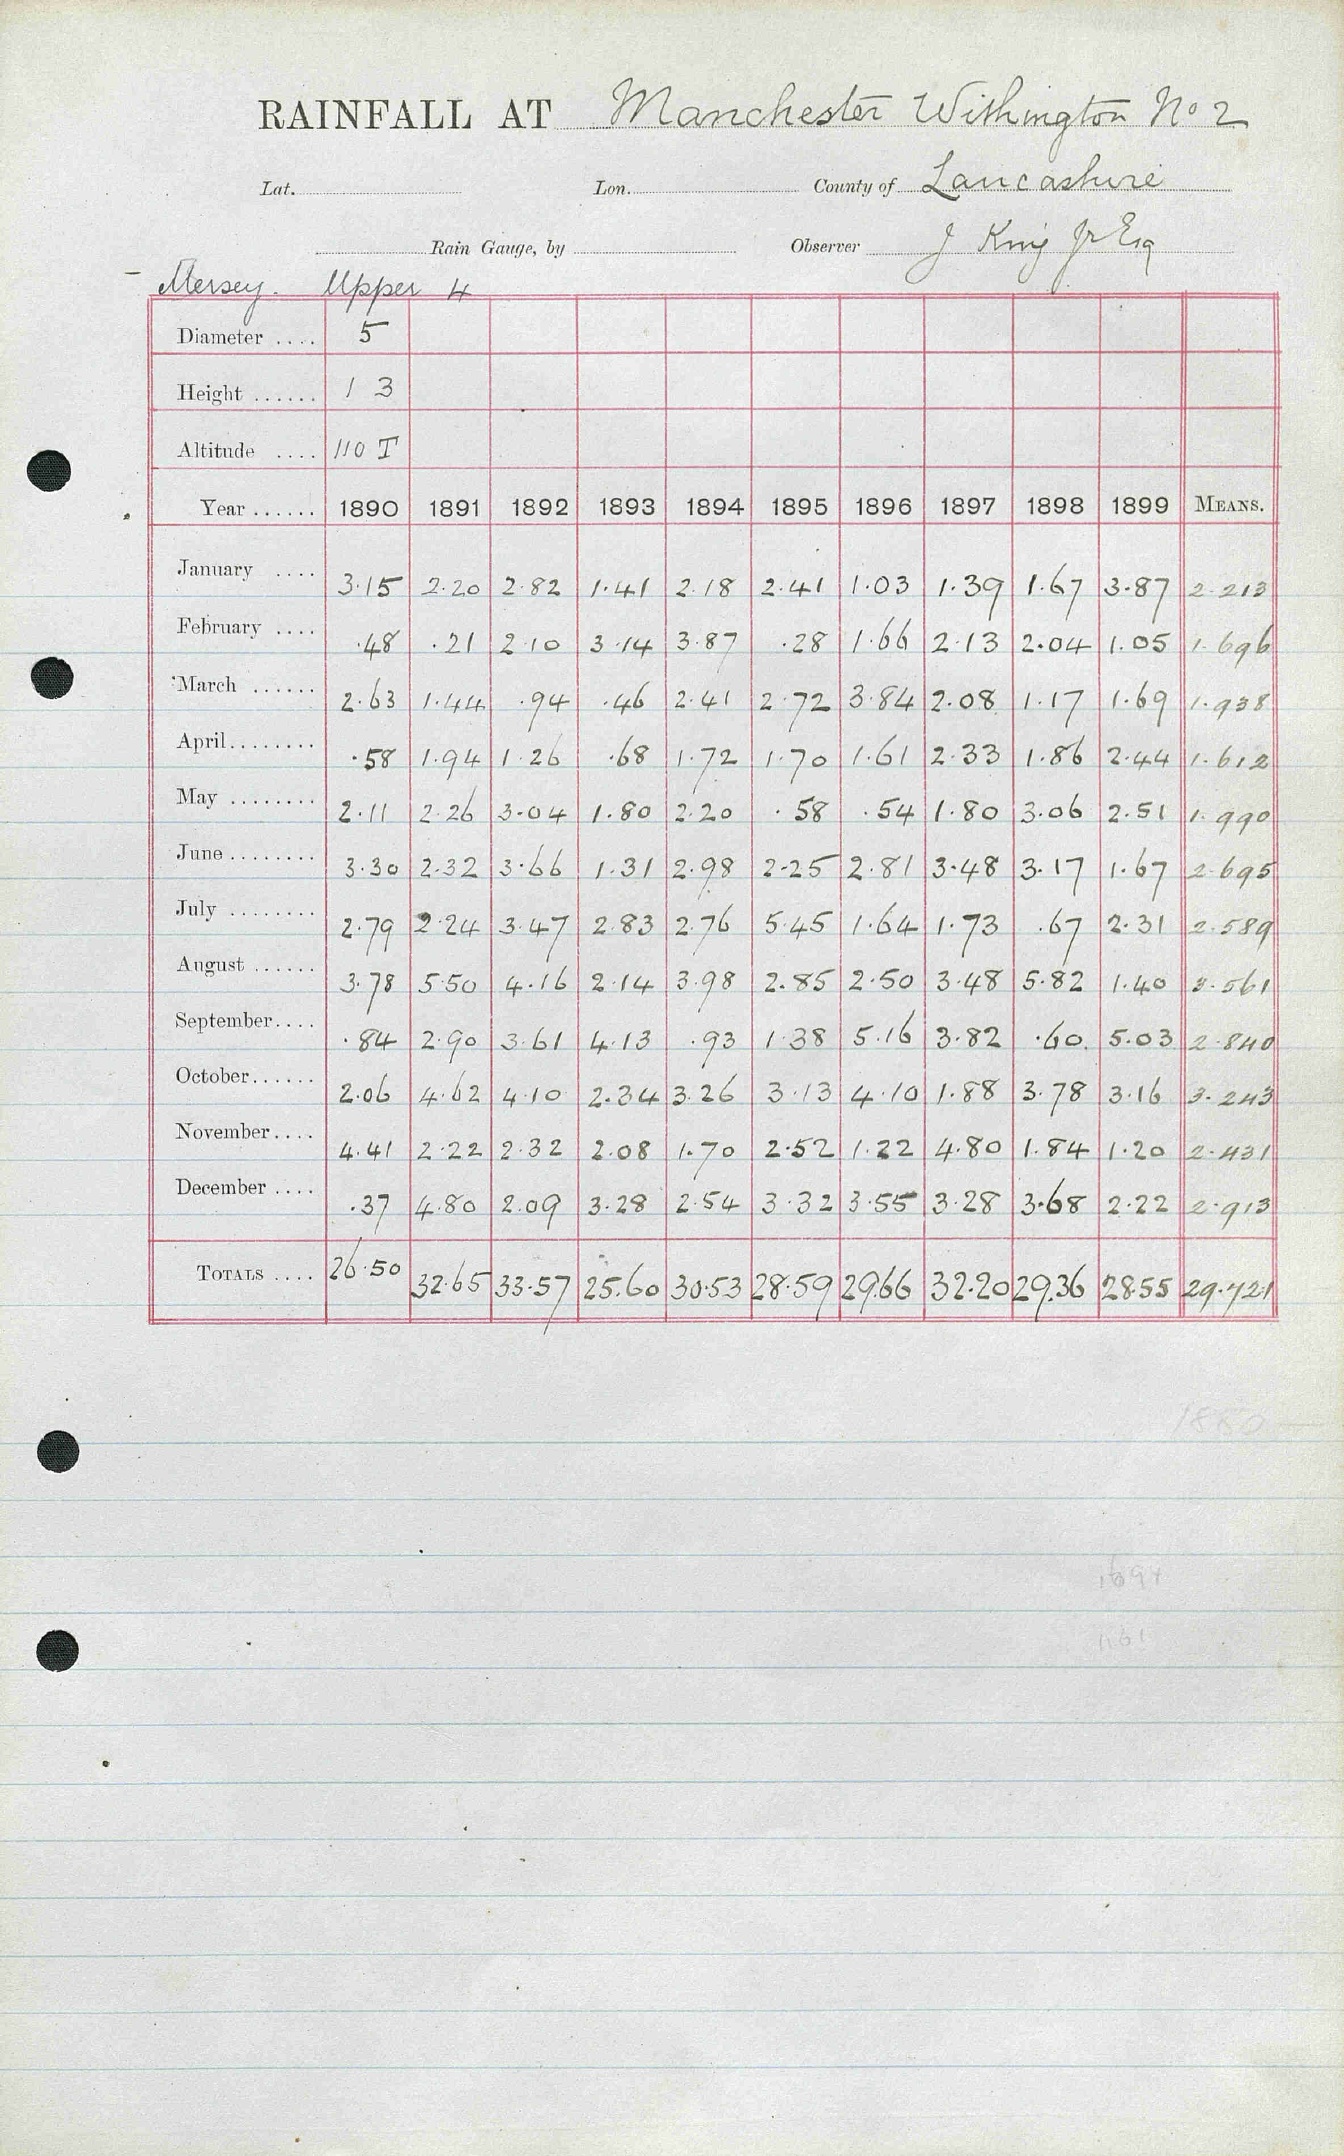 RAINFALL AT Manchester Withington No 2
Lat. Lon. County of Lancashire
Rain Gauge, by Observer J King Jr Esq
Mersey. Upper 4
Diameter .... 5
Height ...... 1 3
Altitude .... 110 T
Year ...... 1890 1891 1892 1893 1894 1895 1896 1897 1898 1899 MEANS.
January .... 3.15 2.20 2.82 1.41 2.18 2.41 1.03 1.39 1.67 3.87 2.213
February .... .48 .21 2.10 3.14 3.87 .28 1.66 2.13 2.04 1.05 1.696
March ...... 2.63 1.44 .94 .46 2.41 2.72 3.84 2.08 1.17 1.69 1.938
April........ .58 1.94 1.26 .68 1.72 1.70 1.61 2.33 1.86 2.44 1.612
May ........ 2.11 2.26 3.04 1.80 2.20 .58 .54 1.80 3.06 2.51 1.990
June ........ 3.30 2.32 3.66 1.31 2.98 2.25 2.81 3.48 3.17 1.67 2.695
July ........ 2.79 2.24 3.47 2.83 2.76 5.45 1.64 1.73 .67 2.31 2.589
August ...... 3.78 5.50 4.16 2.14 3.98 2.85 2.50 3.48 5.82 1.40 3.561
September.... .84 2.90 3.61 4.13 .93 1.38 5.16 3.82 .60 5.03 2.840
October...... 2.06 4.62 4.10 2.34 3.26 3.13 4.10 1.88 3.78 3.16 3.243
November.... 4.41 2.22 2.32 2.08 1.70 2.52 1.22 4.80 1.84 1.20 2.431
December .... .37 4.80 2.09 3.28 2.54 3.32 3.55 3.28 3.68 2.22 2.913
TOTALS .... 26.50 32.65 33.57 25.60 30.53 28.59 29.66 32.20 29.36 28.55 29.721